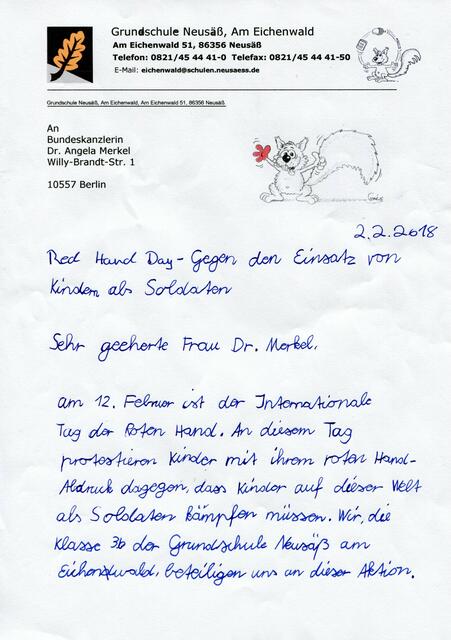 Grundschule Neusäß, Am Eichenwald
Am Eichenwald 51, 86356 Neusäß
Telefon: 0821/45 44 41-0 Telefax: 0821/45 44 41-50
E-Mail: eichenwald@schulen.neusaess.de
Grundschule Neusäß, Am Eichenwald, Am Eichenwald 51, 86356 Neusäß
An
Bundeskanzlerin
Dr. Angela Merkel
Willy-Brandt-Str. 1
10557 Berlin
2.2.2018
Red Hand Day - Gegen den Einsatz von
Kindern als Soldaten
Sehr geeherte Frau Dr. Merkel,
am 12. Februar ist der Internationale
Tag der Roten Hand. An diesem Tag
protestieren Kinder mit ihrem roten Hand-
Abdruck dagegen, dass Kinder auf dieser Welt
als Soldaten kämpfen müssen. Wir, die
Klasse 3b der Grundschule Neusäß am
Eichenwald, beteiligen uns an dieser Aktion.